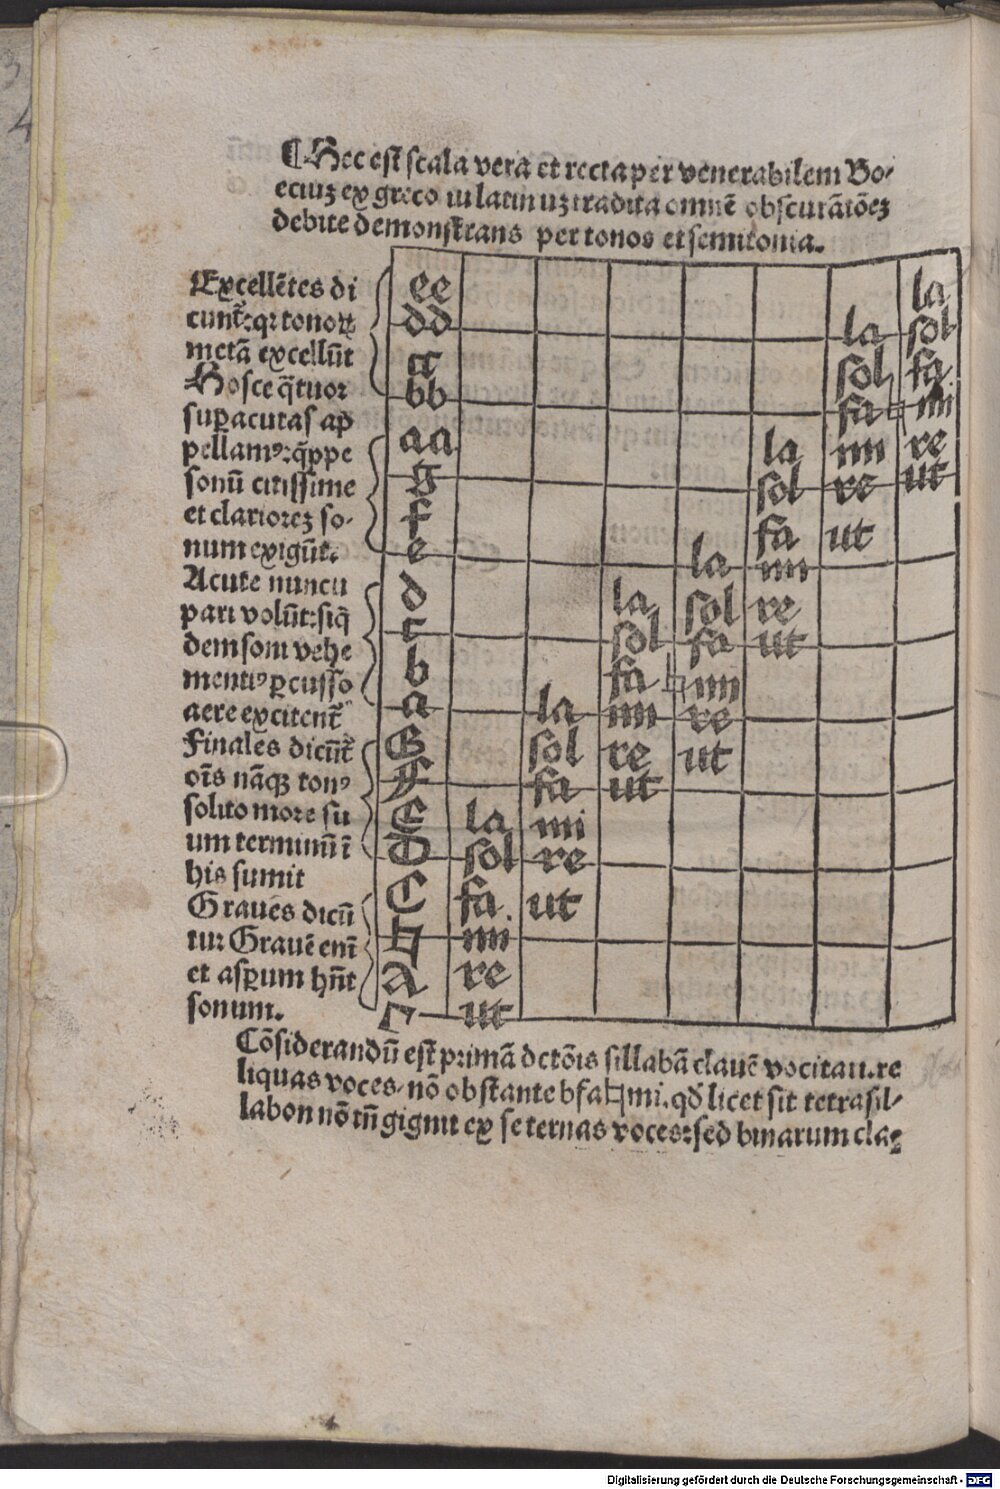 ¶ Hec est scala vera et recta per venerabilem Bo-
eciuꝫ ex greco in latinuꝫ tradita omnē obscurātōeꝫ
debite demonstrans per tonos et semitonia.
Excellētes di
cunt᷑:qꝛ tonoꝝ
metā excellūt
Hosce q̄tuor
suꝑacutas ap
pellamꝰ:q̄ppe
sonū citissime
et clarioreꝫ so-
num exigūt.
Acute nuncu
pari volūt:siq̄
dem soni vehe
mentiꝰ ꝑcusso
aere excitent᷑
Finales dicūt᷑
oīs nāqꝫ tonꝰ
solito more su
um terminū ī
his sumit
Graues dicū
tur Grauē enī
et asꝑum hn̄t
sonum.
ee la
dd la sol
cc sol fa
bb fa ♮ mi
aa la mi re
g sol re ut
f fa ut
e la mi
d la sol re
c sol fa ut
b fa ♮ mi
a la mi re
G sol re ut
F fa ut
E la mi
D sol re
C fa ut
♮ mi
A re
Γ ut
Cōsiderandū est primā dctōis sillabā clauē vocitari.re
liquas voces. nō obstante bfa♮mi. qđ licet sit tetrasil-
labon nō tn̄ gignit ex se ternas voces:sed binarum cla⸗
Digitalisierung gefördert durch die Deutsche Forschungsgemeinschaft - DFG